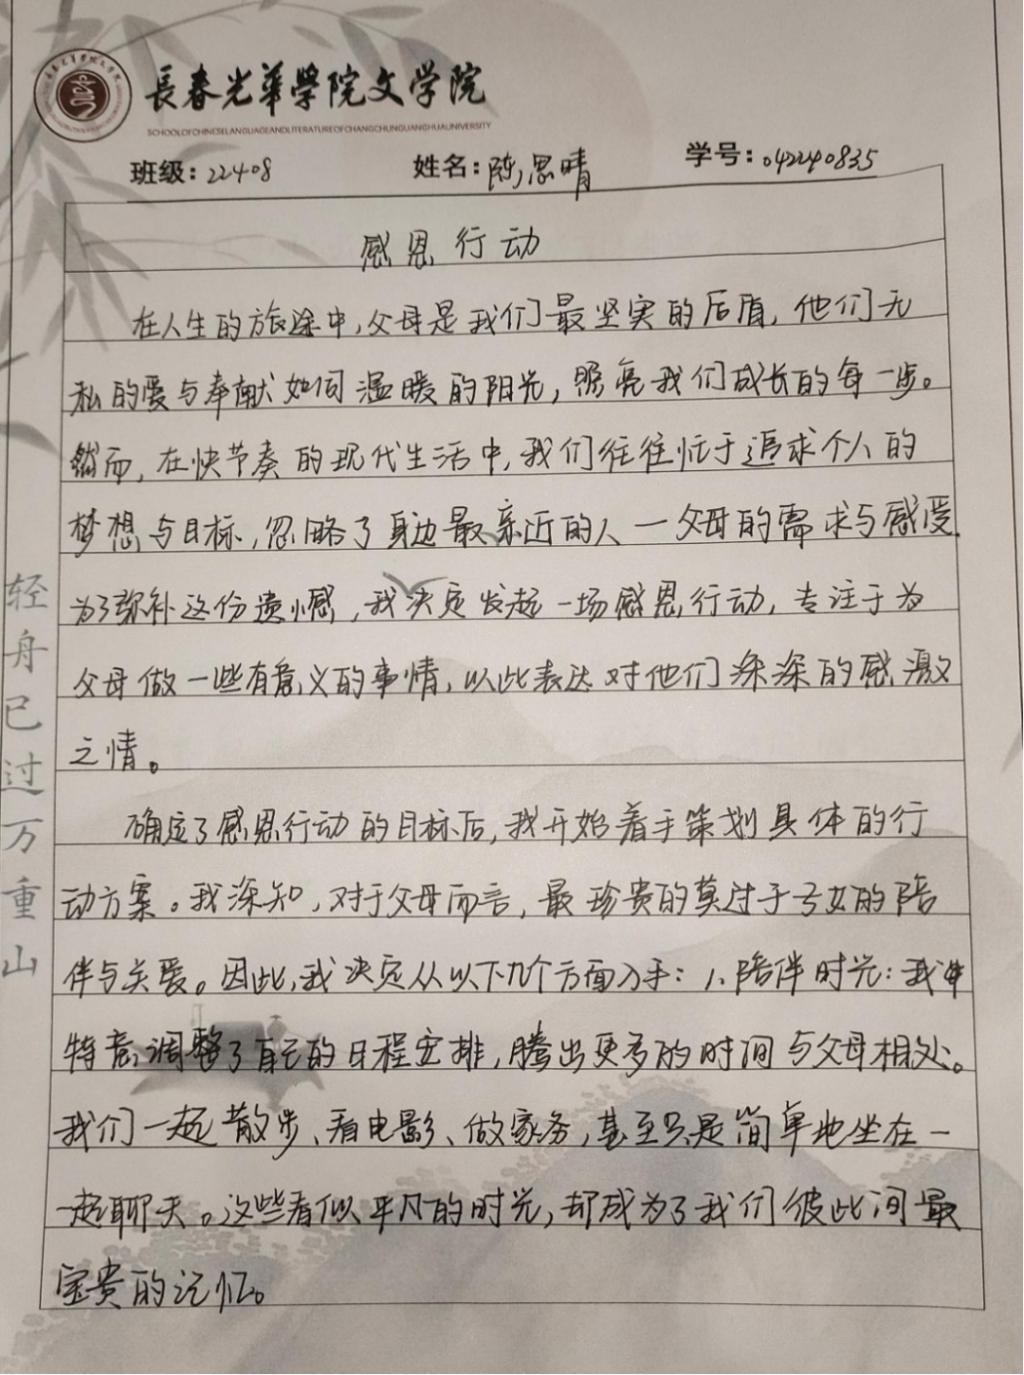 長春光華學院文学院
SCHOOLOFCHINESELANGUAGEANDLITERATUREOFCHANGCHUNGUANGHUAUNIVERSITY
班级：22408 姓名：陈思晴 学号：042240835
感恩行动
在人生的旅途中，父母是我们最坚实的后盾，他们无
私的爱与奉献如同温暖的阳光，照亮我们成长的每一步。
然而，在快节奏的现代生活中，我们往往忙于追求个人的
梦想与目标，忽略了身边最亲近的人一父母的需求与感受.
为了弥补这份遗憾，我决定发起一场感恩行动，专注于为
父母做一些有意义的事情，以此表达对他们深深的感激
之情。
确定了感恩行动的目标后，我开始着手策划具体的行
动方案。我深知，对于父母而言，最珍贵的莫过于子女的陪
伴与关爱。因此，我决定从以下几个方面入手：1、陪伴时光：我
特意调整了自己的日程安排，腾出更多的时间与父母相处。
我们一起散步、看电影、做家务，甚至只是简单地坐在一
一起聊天。这些看似平凡的时光，却成为了我们彼此间最
宝贵的记忆。
轻舟已过万重山